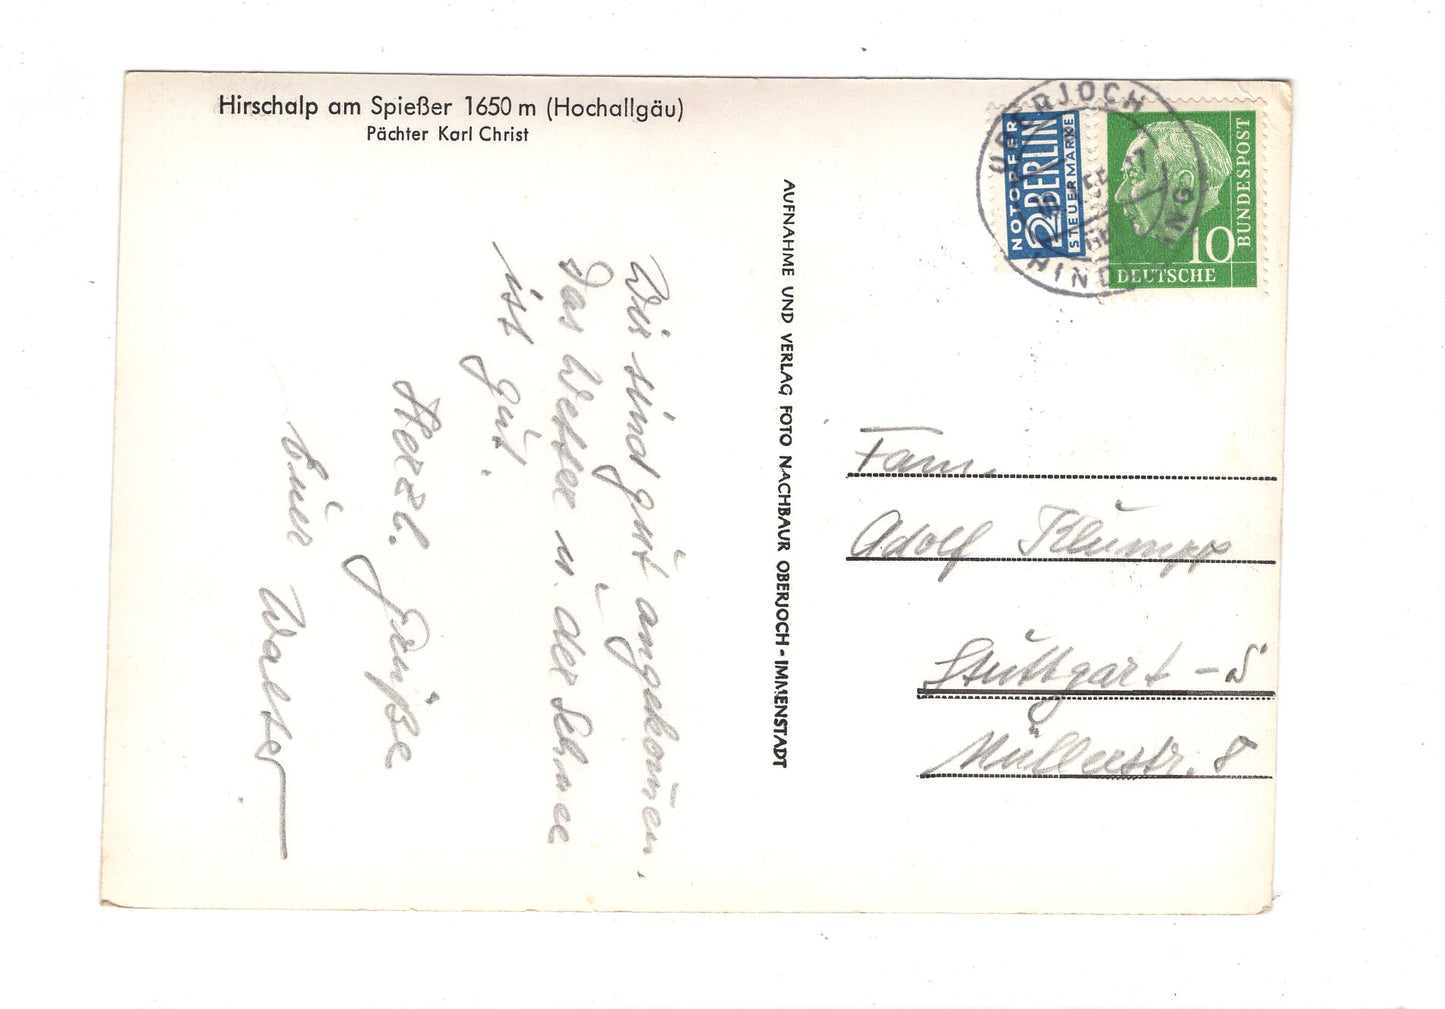 Hirschalp am Spießer 1650 m (Hochallgäu)
Pächter Karl Christ
Wir sind gut angekommen.
Das Wetter u. der Schnee
ist gut.
Herzl. Grüße
Euer Walter
AUFNAHME UND VERLAG FOTO NACHBAUR OBERJOCH-IMMENSTADT
NOTOPFER
2 BERLIN
STEUERMARKE
DEUTSCHE
BUNDESPOST
10
OBERJOCH
Fam.
Adolf Klumpp
Stuttgart - S
Müllerstr. 8